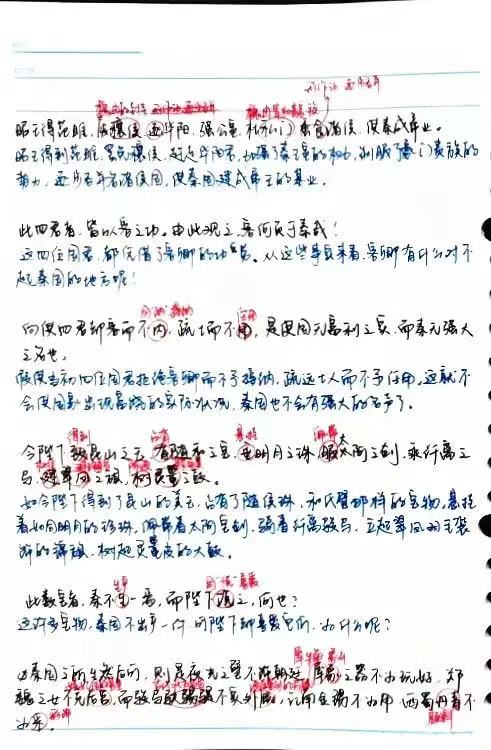 昭王得范雎，废穰侯，逐华阳，强公室，杜私门，蚕食诸侯，使秦成帝业。
昭王得到范雎，罢免穰侯，赶走华阳君，加强了秦王室的权力，制服了豪门贵族的
势力，逐步吞并各诸侯国，使秦国建成帝王的基业。
此四君者，皆以客之功。由此观之，客何负于秦哉！
这四位国君，都凭借了客卿的功劳。从这些事实来看，客卿有什么对不
起秦国的地方呢！
同"纳"接纳
向使四君却客而不内，疏士而不用，是使国无富利之实，而秦无强大
之名也。
假使当初四位国君拒绝客卿而不予接纳，疏远士人而不予任用，这就不
会使国家出现富饶的实际状况，秦国也不会有强大的名声了。
得到 占有 悬挂 佩带
今陛下致昆山之玉，有随和之宝，垂明月之珠，服太阿之剑，乘纤离之
马，建翠凤之旗，树灵鼍之鼓。
如今陛下得到了昆山的美玉，占有了随侯珠、和氏璧那样的宝物，悬挂
着如同明月的珍珠，佩带着太阿宝剑，骑着纤离骏马，立起翠凤羽毛装
饰的旗帜，树起灵鼍皮的大鼓。
同"悦"喜爱
此数宝者，秦不生一焉，而陛下说之，何也？
这许多宝物，秦国不出产一件，可陛下却喜爱它们，为什么呢？
必秦国之所生然后可，则是夜光之璧不饰朝廷，犀象之器不为玩好，郑
魏之女不充后宫，而骏马駃騠不实外厩，江南金锡不为用，西蜀丹青不
为采。